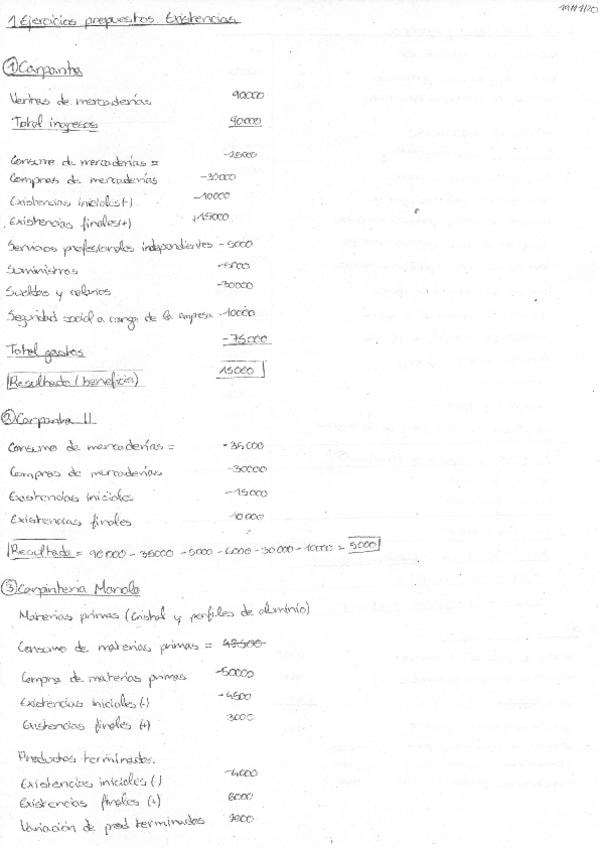 19/11/20
1. Ejercicios propuestos. Existencias
① Carpanta
Ventas de mercaderías 90000
Total ingresos 90000
Consumo de mercaderías = -25000
Compras de mercaderías -30000
Existencias iniciales (-) -10000
Existencias finales (+) +15000
Servicios profesionales independientes -5000
Suministros -5000
Sueldos y salarios -30000
Seguridad social a cargo de la empresa -10000
-75000
Total gastos
Resultado (beneficio) 15000
② Carpanta II
Consumo de mercaderías = -35000
Compras de mercaderías -30000
Existencias iniciales -15000
Existencias finales 10000
Resultado = 90000 - 35000 - 5000 - - 30000 - 10000 = 5000
③ Carpintería Manolo
Materias primas (Cristal y perfiles de aluminio)
Consumo de materias primas = 48500
Compra de materias primas -50000
Existencias iniciales (-) -4500
Existencias finales (+) 3000
Productos terminados.
Existencias iniciales (-) -4000
Existencias finales (+) 6000
Variación de prod terminados 2000